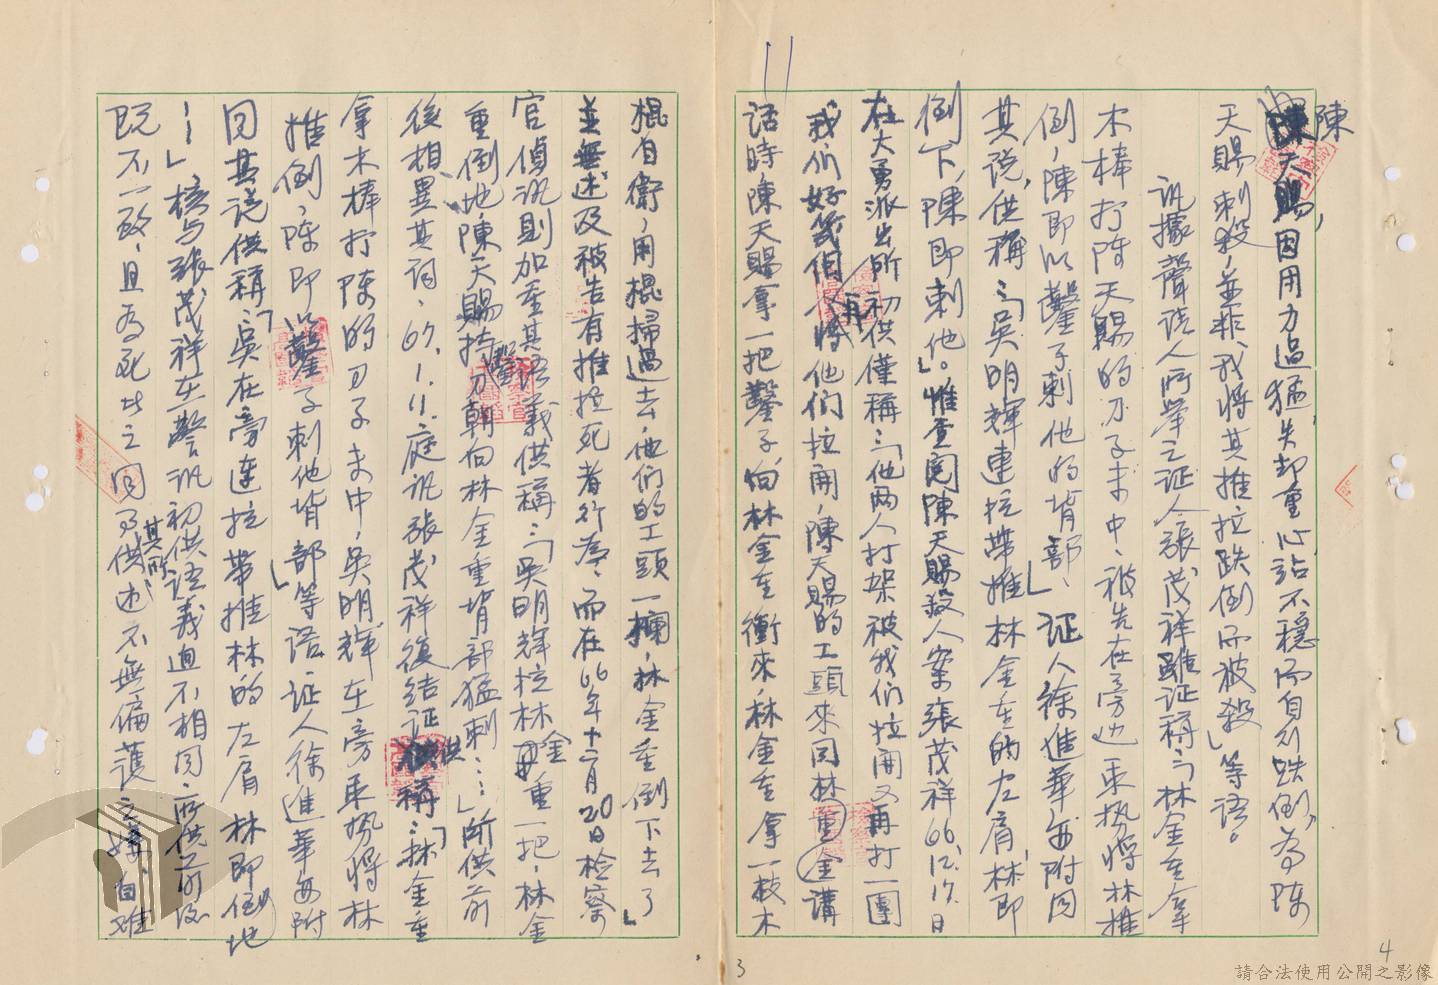 陳天賜,因用力過猛失却重心站不穩而自行跌倒,為陳
天賜刺殺,並非我將其推拉跌倒而被殺」等語。
訊據聲請人所举之証人張茂祥雖証稱:「林金重拿
木棒打陈天賜的刀子未中,被告在旁边乘势將林推
倒,陳即以鑿子刺他的背部」、証人徐進華每附同
其說,供稱:「吳明輝連拉帶推林金重的左肩,林即
倒下,陳即刺他」。惟查閱陳天賜殺人案張茂祥66.12.17.日
在大勇派出所初供僅稱:「他两人打架被我们拉開又再打一團
我们好幾個人再將他们拉開,陳天賜的工頭來同林金重講
話時陳天賜拿一把鑿子,向林金重衝來,林金重拿一枝木
棍自衛,用棍掃過去,他们的工頭一攔,林金重倒下去了」
並無述及被告有推拉死者行為、而在66年十二月20日检察
官偵訊則加重其語義供稱:「吳明輝拉林金重一把,林金
重倒地,陳天賜持鑿刀朝向林金重背部猛刺…」所供前
後相異其詞、67.1.11.庭訊張茂祥復結証供稱:「林金重
拿木棒打陈的刀子未中,吳明輝在旁乘势將林
推倒,陈即以鑿子刺他背部」等語、証人徐進華每附
同其說供稱:「吳在旁連拉帶推林的左肩林即倒地
…」核与張茂祥在警訊初供語義迥不相同,所供前後
既不一致,且為死者之同乡其所供述不無偏護之嫌,自难
3
4
請合法使用公開之影像